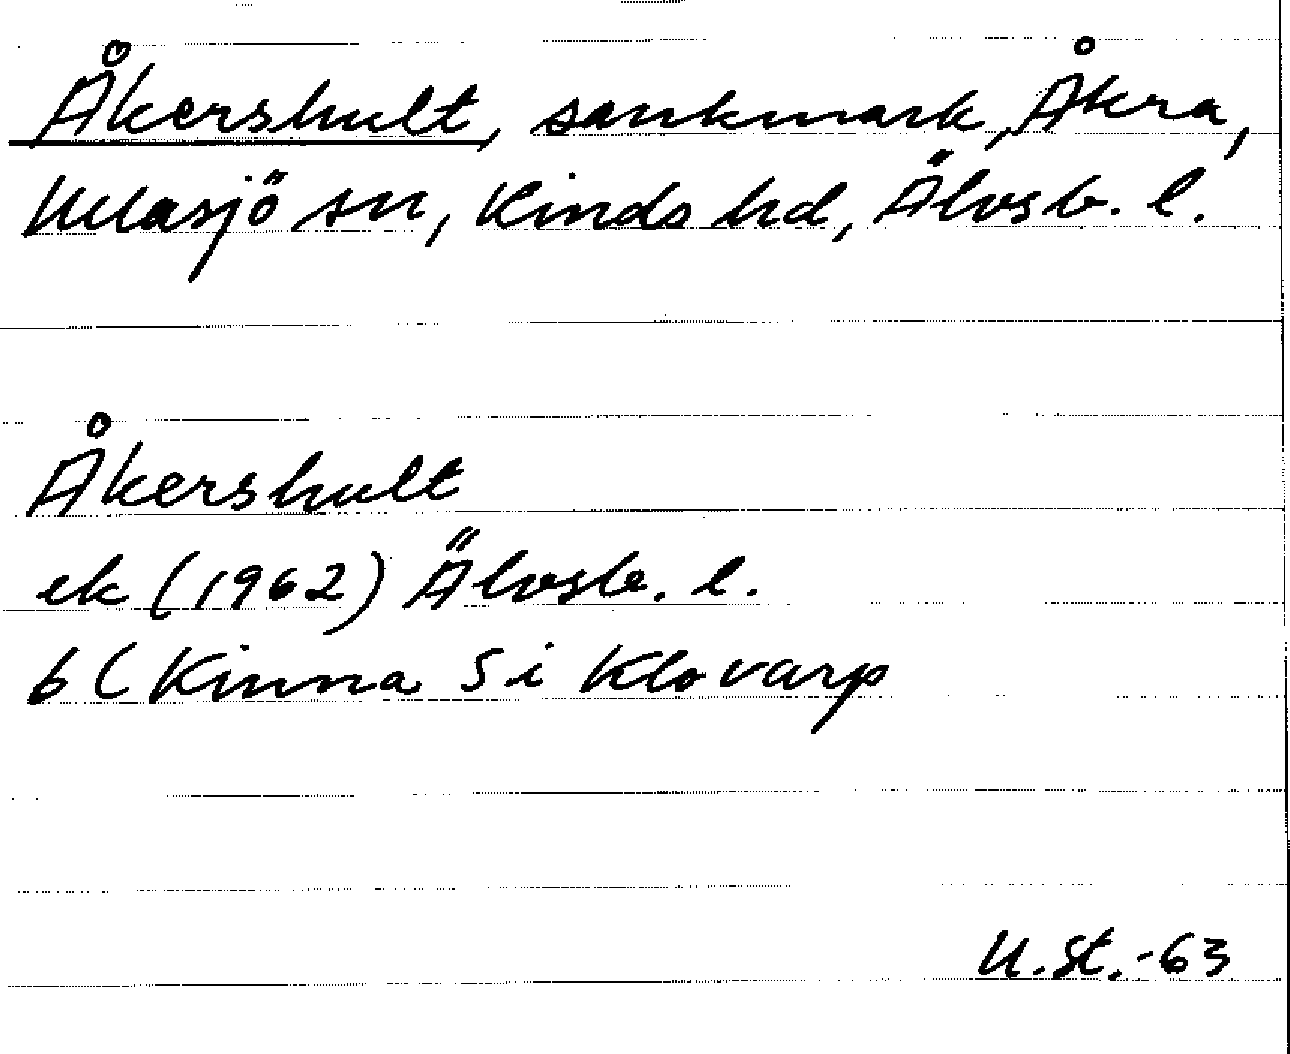 Åkershult, sankmark, Åkra,
Ullasjö sn, Kinds hd, Älvsb. l.
Åkershult
ek (1962) Älvsb. l.
6 ( Kinna 5 i Klovarp
U.St.-63